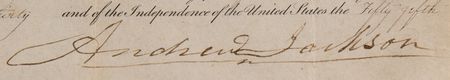 and of the Independence of the United States the Fifty fifth
Andrew Jackson